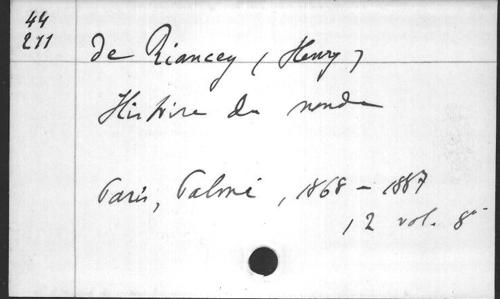 44
211
de Riancey (Henry)
Histoire du monde
Paris, Palmé, 1868 - 1887
12 vol. 8°